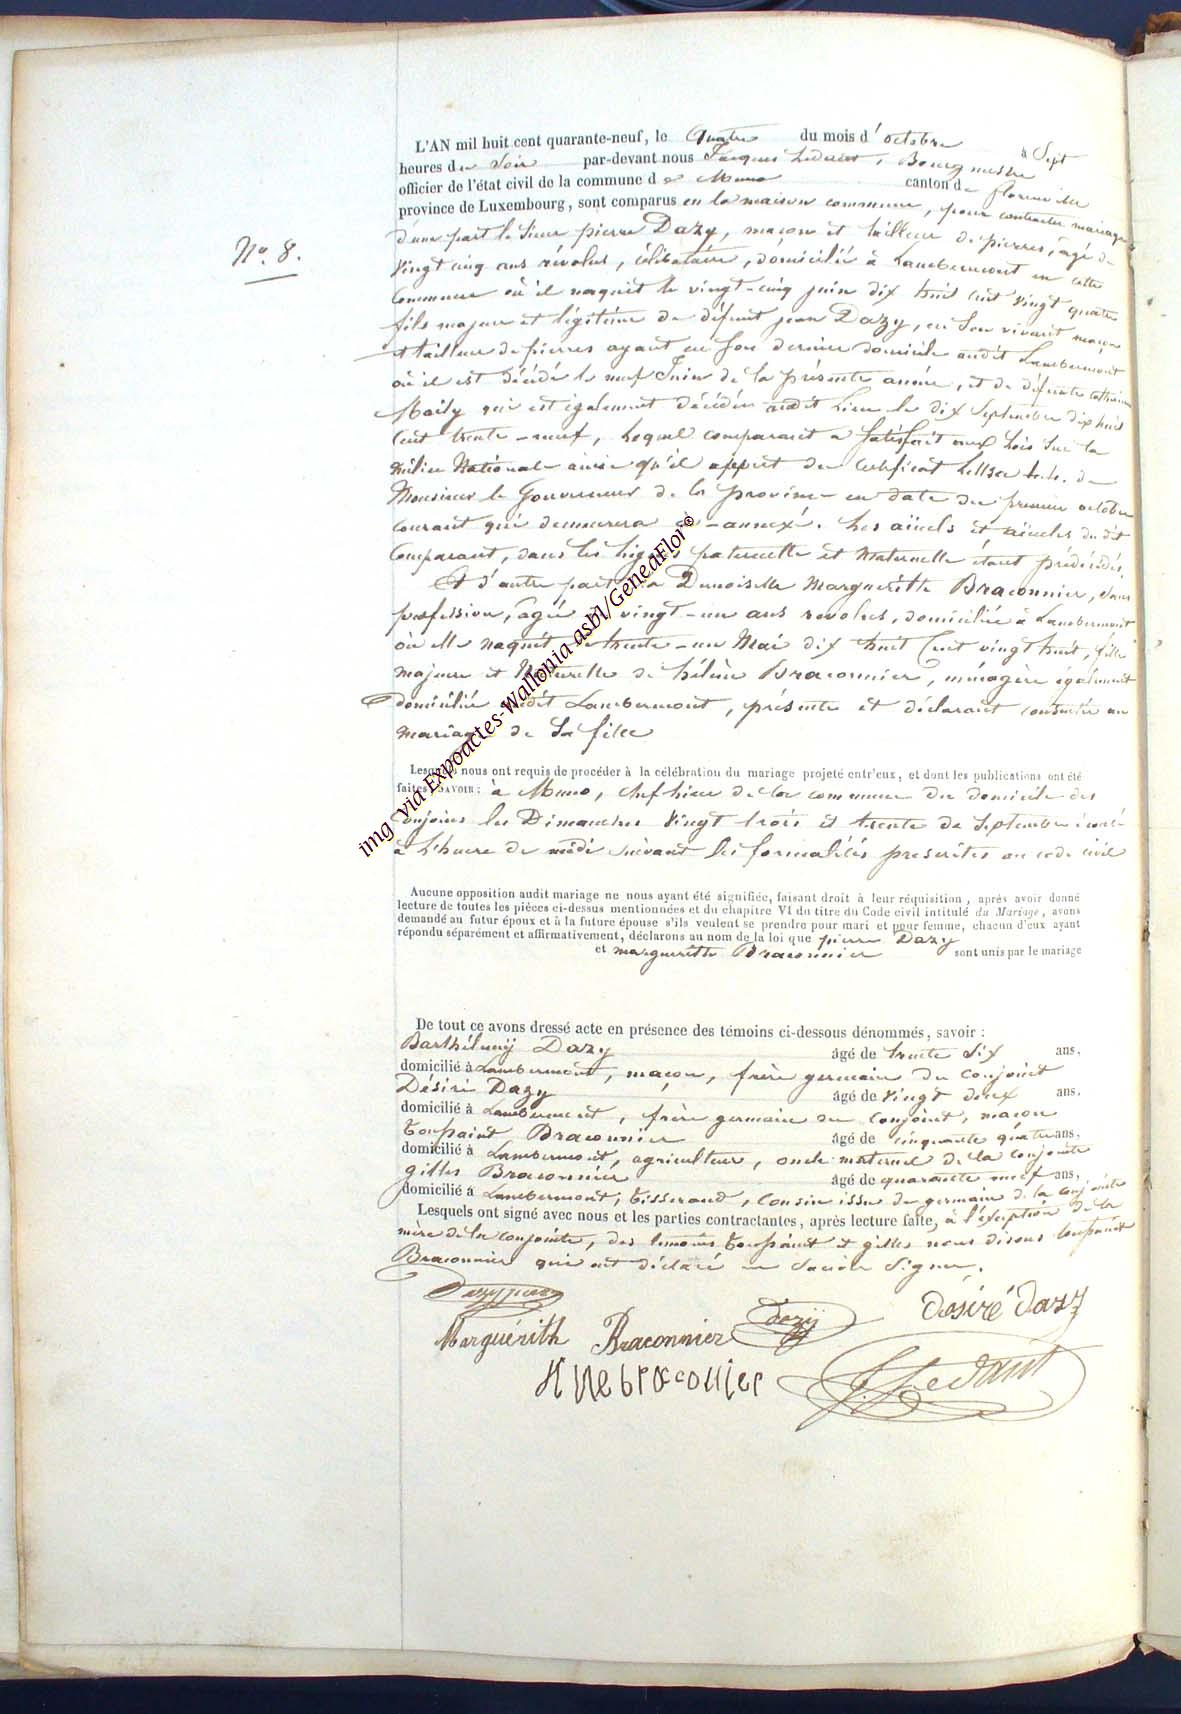 L'AN mil huit cent quarante-neuf, le quatre du mois d'octobre à Sept
heures du Soir par-devant nous Jacques Ledant, Bourgmestre
officier de l'état civil de la commune de Muno canton de florenville
province de Luxembourg, sont comparus en la maison commune, pour contracter mariage
d'une part le Sieur pierre Dazy, maçon et tailleur de pierres, âgé de
N.º 8.
vingt cinq ans révolus, célibataire, domicilié à Lambermont en cette
commune où il naquit le vingt-cinq juin dix huit cent vingt quatre
fils majeur et légitime de défunt jean Dazy, en Son vivant maçon
et tailleur de pierres ayant eu Son dernier domicile audit Lambermont
où il est décédé le neuf Juin de la présente année, et de défunte catherine
Maily qui est également décédée audit Lieu le dix Septembre dix huit
Cent trente-neuf, Lequel comparant a Satisfait aux Lois Sur la
milice Nationale ainsi qu'il appert du certificat Lettre de
Monsieur le Gouverneur de la province en date du premier octobre
courant qui demeurera ci-annexé. Les aïeuls et aïeules du dit
Comparant, dans les lignes paternelle et maternelle étant prédécédés.
Et d'autre part la Demoiselle Marguérithe Braconnier, Sans
profession, âgée de vingt-un ans révolus, domiciliée à Lambermont
où elle naquit le trente-un Mai dix huit Cent vingt huit, fille
majeure et Naturelle de hélène Braconnier, ménagère également
domiciliée audit Lambermont, présente et déclarant consentir au
mariage de Sa fille
Lesquels nous ont requis de procéder à la célébration du mariage projeté entr'eux, et dont les publications ont été
faites, SAVOIR: à Muno, chef lieu de la commune du domicile des
conjoints les Dimanches vingt trois et trente de Septembre écoulé
à L'heure de midi suivant les formalités prescrites au code civil
Aucune opposition audit mariage ne nous ayant été signifiée, faisant droit à leur réquisition, après avoir donné
lecture de toutes les pièces ci-dessus mentionnées et du chapitre VI du titre du Code civil intitulé du Mariage, avons
demandé au futur époux et à la future épouse s'ils veulent se prendre pour mari et pour femme, chacun d'eux ayant
répondu séparément et affirmativement, déclarons au nom de la loi que pierre Dazy
et marguerithe Braconnier sont unis par le mariage
De tout ce avons dressé acte en présence des témoins ci-dessous dénommés, savoir :
Barthélemij Dazy âgé de trente Six ans,
domicilié à Lambermont, maçon, frère germain du conjoint
Désiré Dazy âgé de vingt deux ans,
domicilié à Lambermont, frère germain du conjoint, maçon
Toussaint Braconnier âgé de cinquante quatre ans,
domicilié à Lambermont, agriculteur, oncle maternel de la conjointe
gilles Braconnier âgé de quarante neuf ans,
domicilié à Lambermont, tisserand, Cousin issu de germain de la conjointe
Lesquels ont signé avec nous et les parties contractantes, après lecture faite, à l'exception de la
mère de la conjointe, des témoins Toussaint et gilles nous disons toussaint
Braconnier qui ont déclaré ne Savoir Signer.
Dazy pierre
Dazij
désiré dazy
Marguérith Braconnier
J. Ledant
img via Expoactes-Wallonia asbl/GeneaFlor©